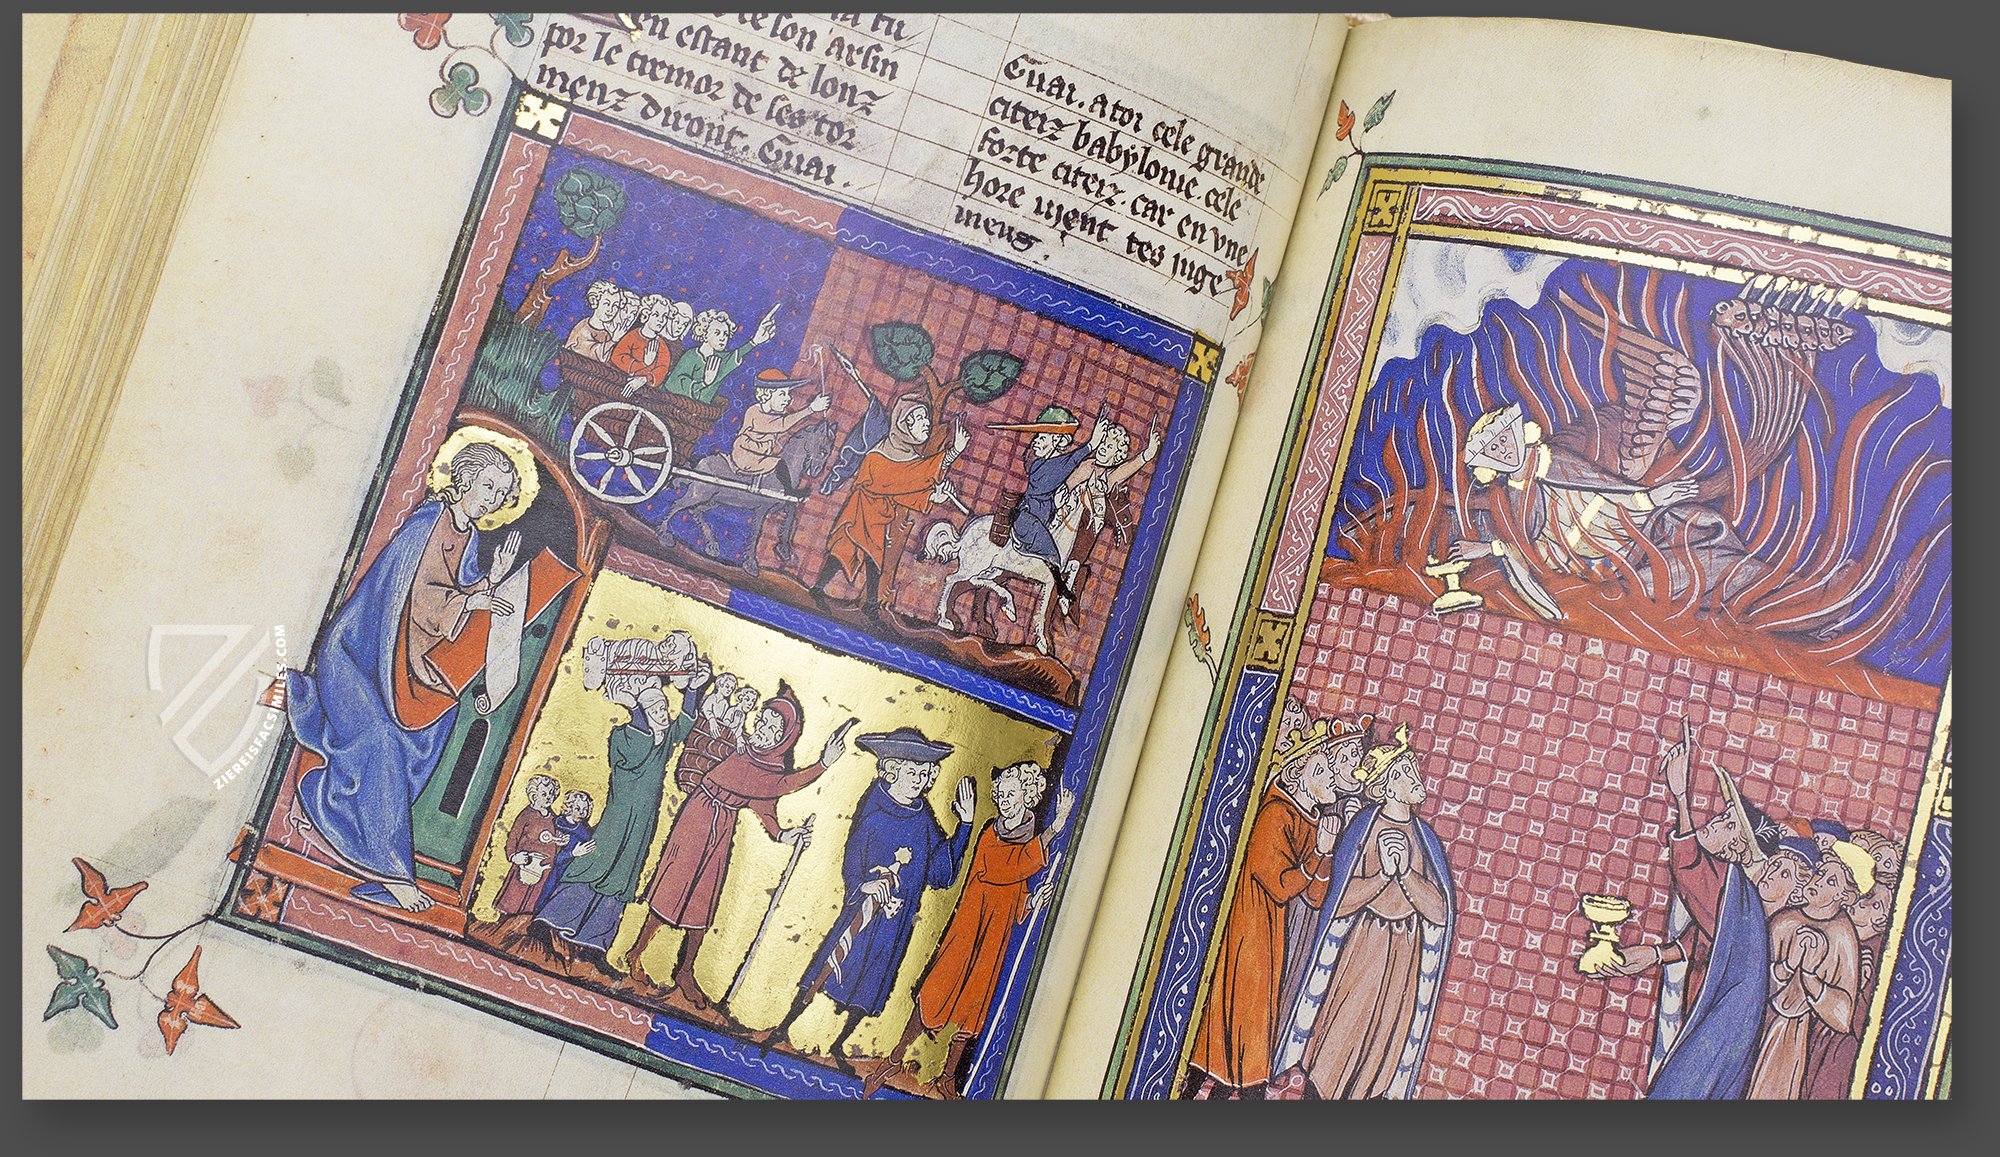 en estant de lonz
por le cremor de ses tor
menz diront. Guai.
Guai. a toi cele grande
citeiz babylonie. cele
forte citeiz. car en vne
hore uient tes iuge
menz.
ZIEREISFACSIMILES.COM